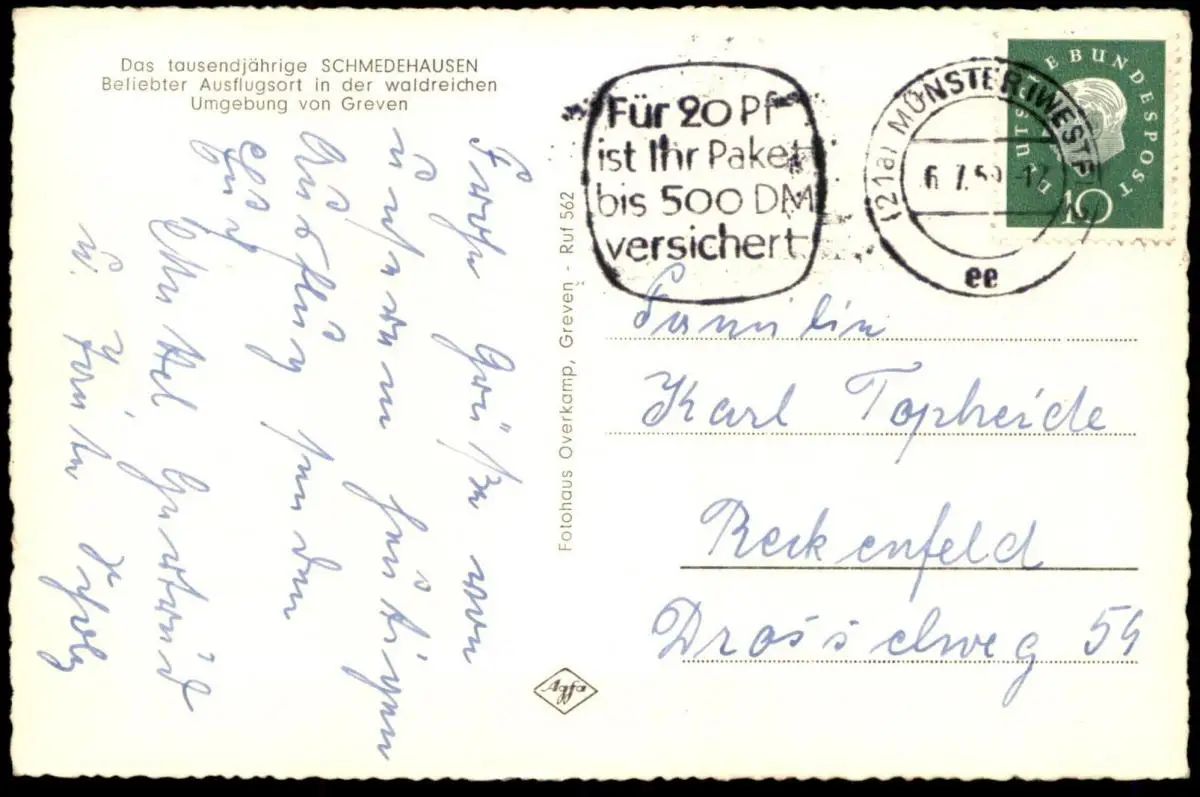 Das tausendjährige SCHMEDEHAUSEN
Beliebter Ausflugsort in der waldreichen
Umgebung von Greven
Frohe Grüße von
unserem heutigen
Ausflug senden
Gertrud
u.
Fotohaus Overkamp, Greven - Ruf 562
Agfa
Für 20 Pf
ist Ihr Paket
bis 500 DM
versichert
(21a) MÜNSTER (WESTF
6.7.59
ee
DEUTSCHE BUNDESPOST
10
Familie
Karl Topheide
Reckenfeld
Drosselweg 54